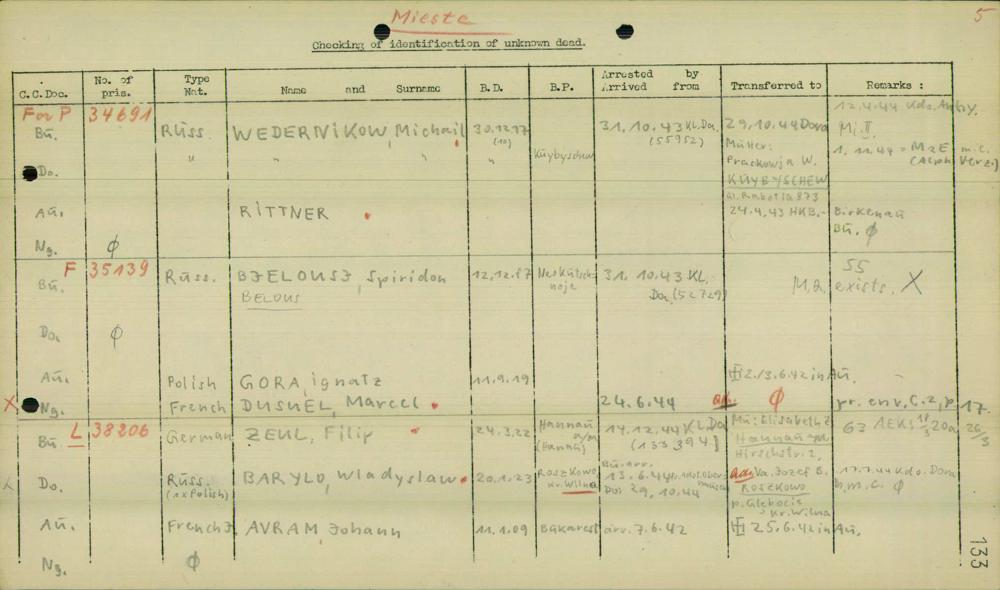 Mieste
5
Checking of identification of unknown dead.
C.C.Doc. No. of pris. Type Nat. Name and Surname B.D. B.P. Arrested by Arrived from Transferred to Remarks :
For P 34691
Bu. Russ. WEDERNIKOW, Michail 30.12.17 (10) 31.10.43 KL.Da. (55952) 29.10.44 Dora 12.4.44 Kdo.
Mi.II.
" " " " Kuybyschew Mutter: 1.11.44 = M2E m.c.
Do. Praskowja W. (Alph. Verz.)
KUYBYSCHEW
873
Au. RITTNER 24.4.43 HKB.- Birkenau
Bu. ϕ
Ng. ϕ
F 35139
Bu. Russ. BJELOUSJ, Spiridon 12.12.17 31.10.43 KL. SS
BELOUS Da. (52729) M.2. exists. X
Do. ϕ
Au. Polish GORA, ignatz 11.9.19 2./3.6.42 in Au. -
X Ng. French DUSUEL, Marcel 24.6.44 ϕ pr. env, C.2, p 17.
L 38206
Bu. German ZEUL, Filip 24.3.22 Hannau a/m (Hannau) 14.12.44 KL.Da (133394) Mu: Elisabeth Z Hannau a/M Hirschstr. 2, 63 AEKI 18/3 20a 26/3
Do. Russ. (1x Polish) BARYLO, Wladyslaw 20.1.23 Roszkowo kr. Wilna Bu. arr. 13.6.44 Do: 29.10.44 Va. Jozef B. ROSZKOWO p. Glebocie Kr. Wilna 17.7.44 Kdo. Dora
m.C. ϕ
Au. French J. AVRAM, Johann 11.1.09 Bukarest arr. 7.6.42 25.6.42 in Au.
Ng. ϕ
133